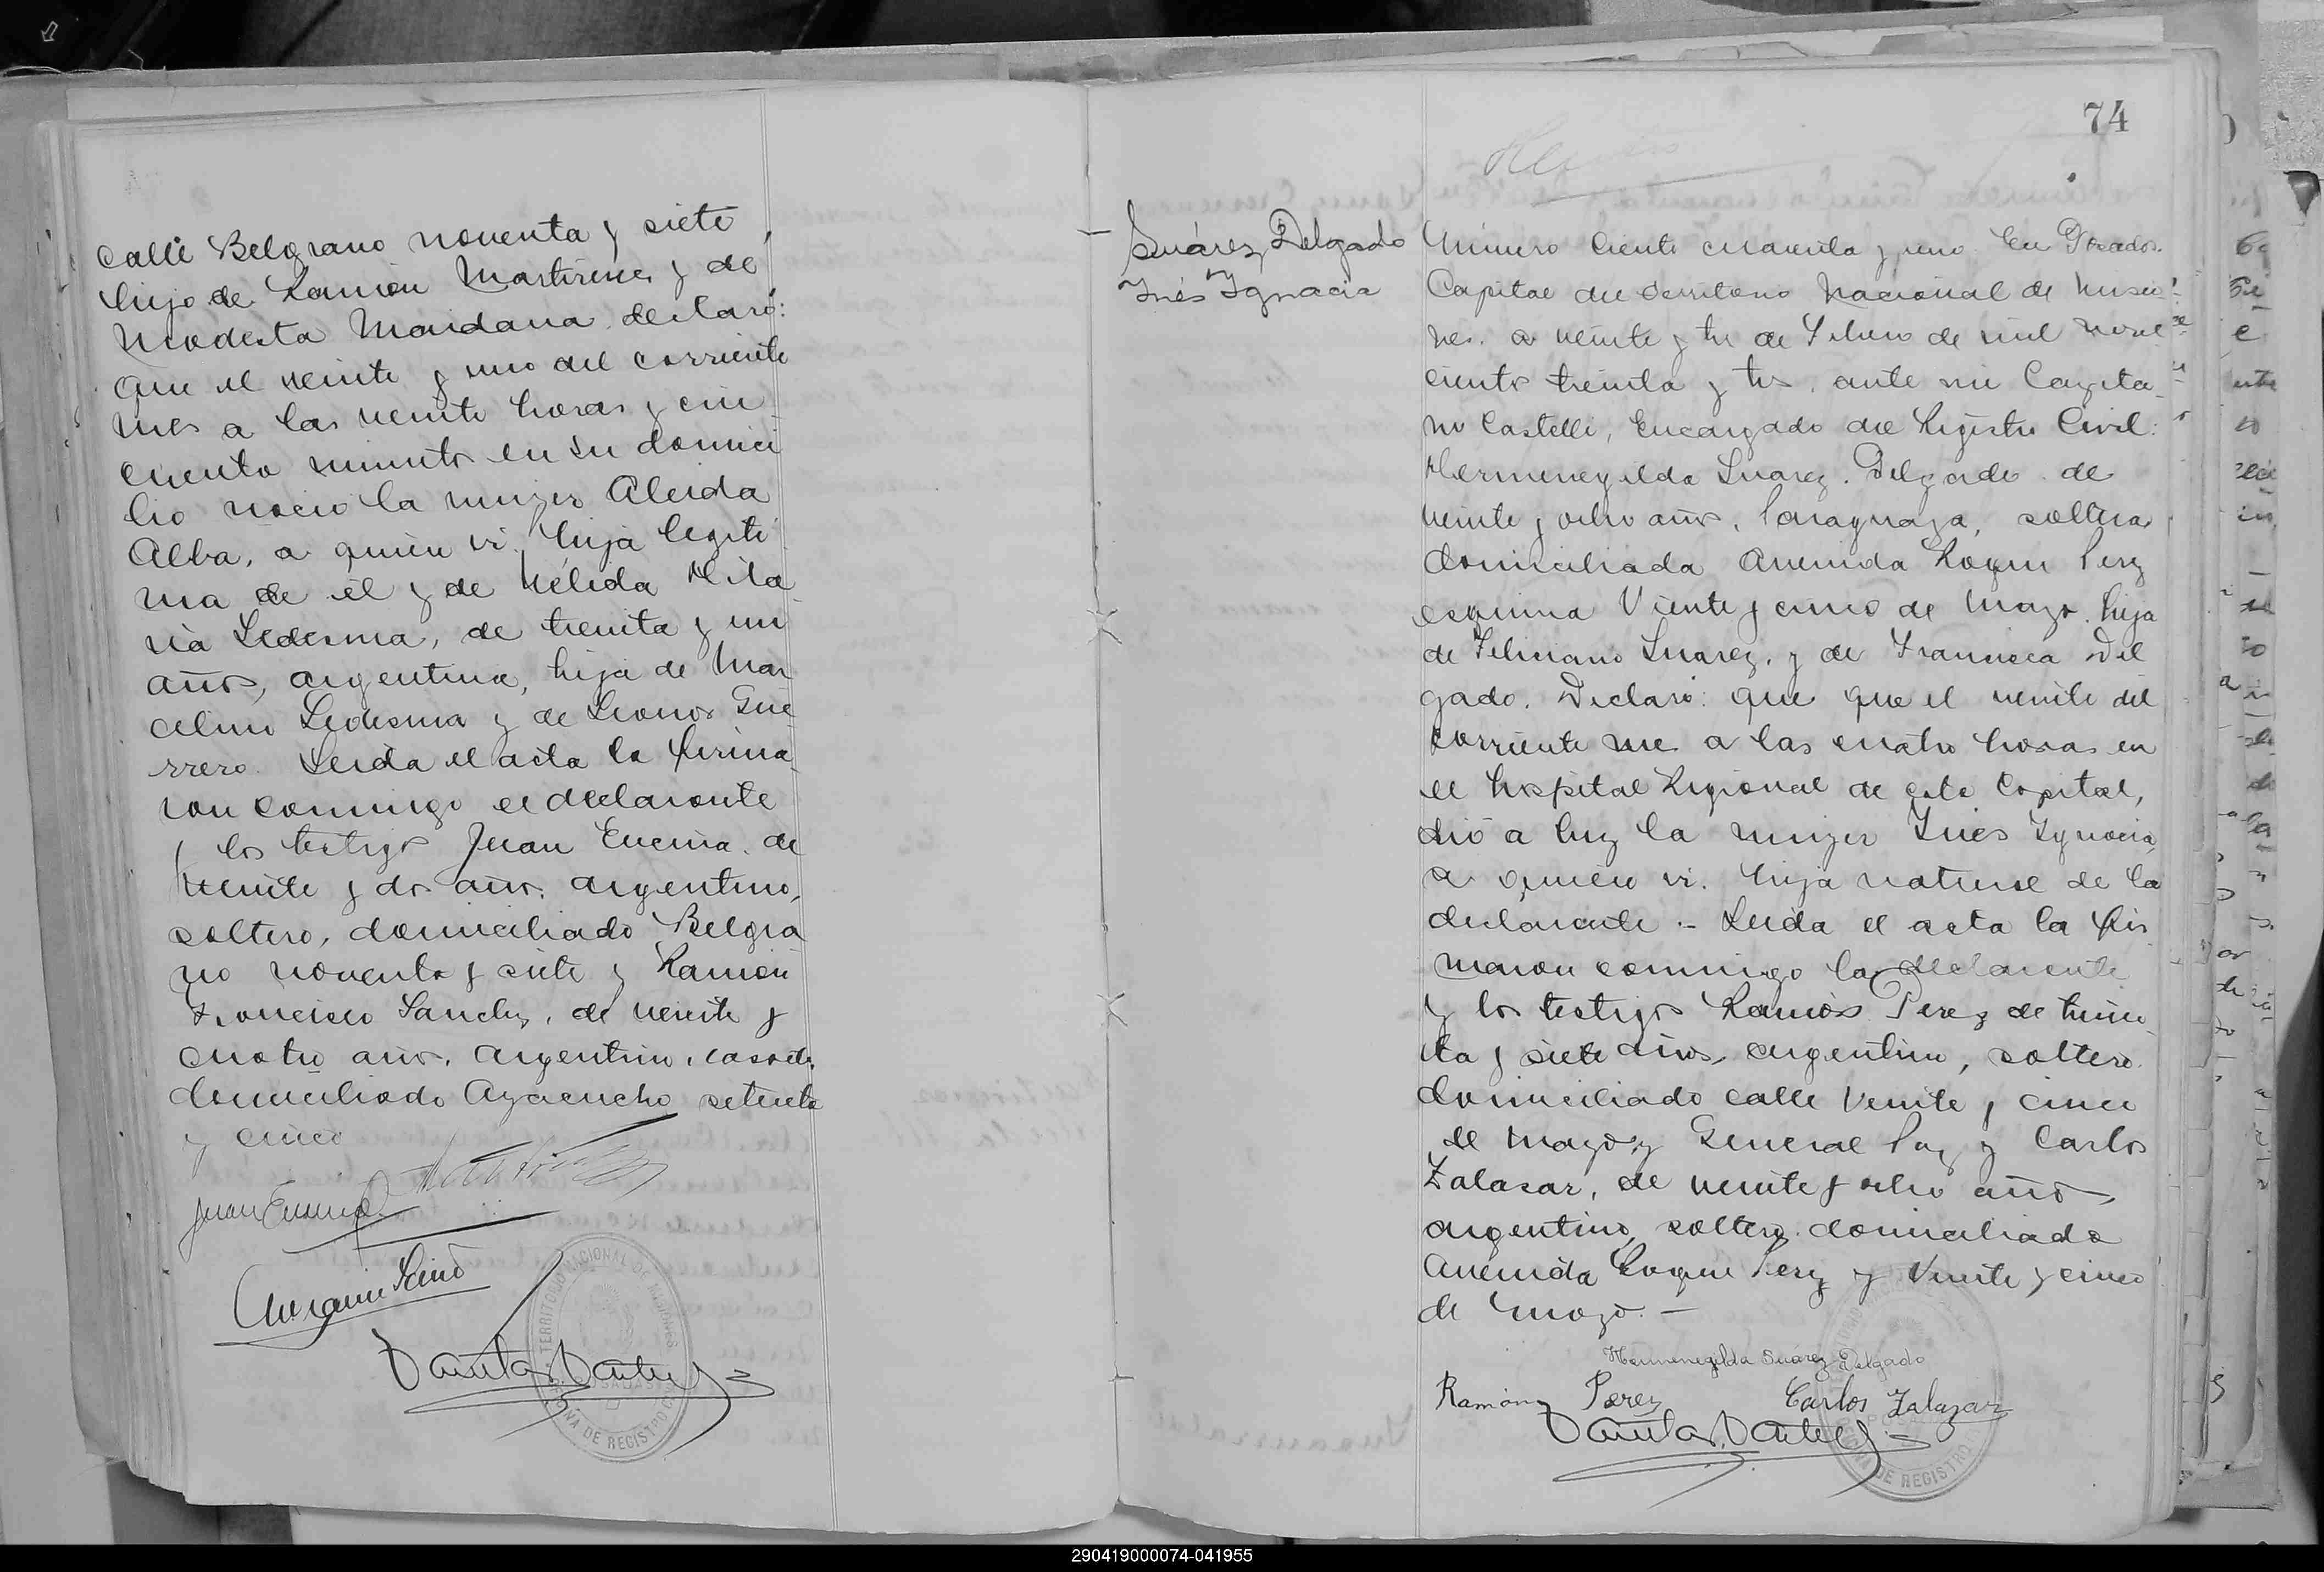 calle Belgrano noventa y siete,
hijo de Ramón Martinez y de
Modesta Maidana declaró:
Que el veinte y uno del corriente
mes a las veinte horas y cin
cuenta minutos en su domici
lio nació la mujer Aleida
Alba, a quien vi, hija legiti
ma de él y de Nélida Hila
ria Ledesma, de treinta y un
años, argentina, hija de Mar
celino Ledesma y de Leonor Gue
rrero. Leida el acta la firma
ron conmigo el declarante
y los testigos Juan Encina de
veinte y dos años, argentino,
soltero, domiciliado Belgra
no noventa y siete y Ramón
Francisco Sanchez, de veinte y
cuatro años, argentino, casado,
domiciliado Ayacucho setenta
y cinco
Juan Encina
TERRITORIO NACIONAL DE MISIONES
POSADAS
OFICINA DE REGISTRO
74
Suárez Delgado
Inés Ignacia
Número ciento cuarenta y uno. En Posadas
Capital del Territorio Nacional de Misio
nes, a veinte y tres de Febrero de mil nove
cientos treinta y tres, ante mi Cayeta
no Castelli, Encargado del Registro Civil:
Hermenegilda Suarez Delgado de
veinte y ocho años, Paraguaya, soltera
domiciliada Avenida Roque Perez
esquina Viente y cinco de Mayo, hija
de Feliciano Suarez, y de Francisca Del
gado. Declaró: que que el veinte del
corriente mes a las cuatro horas en
el hospital Regional de esta Capital,
dió a luz la mujer Inés Ignacia,
a quien vi. hija natural de la
declarante.- Leida el acta la fir
maron conmigo la declarante
y los testigos Ramón Perez de trein
ta y siete años, argentino, soltero
domiciliado calle Veinte y cinco
de Mayo y General Paz y Carlos
Zalasar, de veinte y ocho años,
argentino, soltero domiciliado
Avenida Roque Perez y Veinte y cinco
de Mayo.-
Hermenegilda Suárez Delgado
Ramón Perez Carlos Zalazar
DE REGISTRO
290419000074-041955